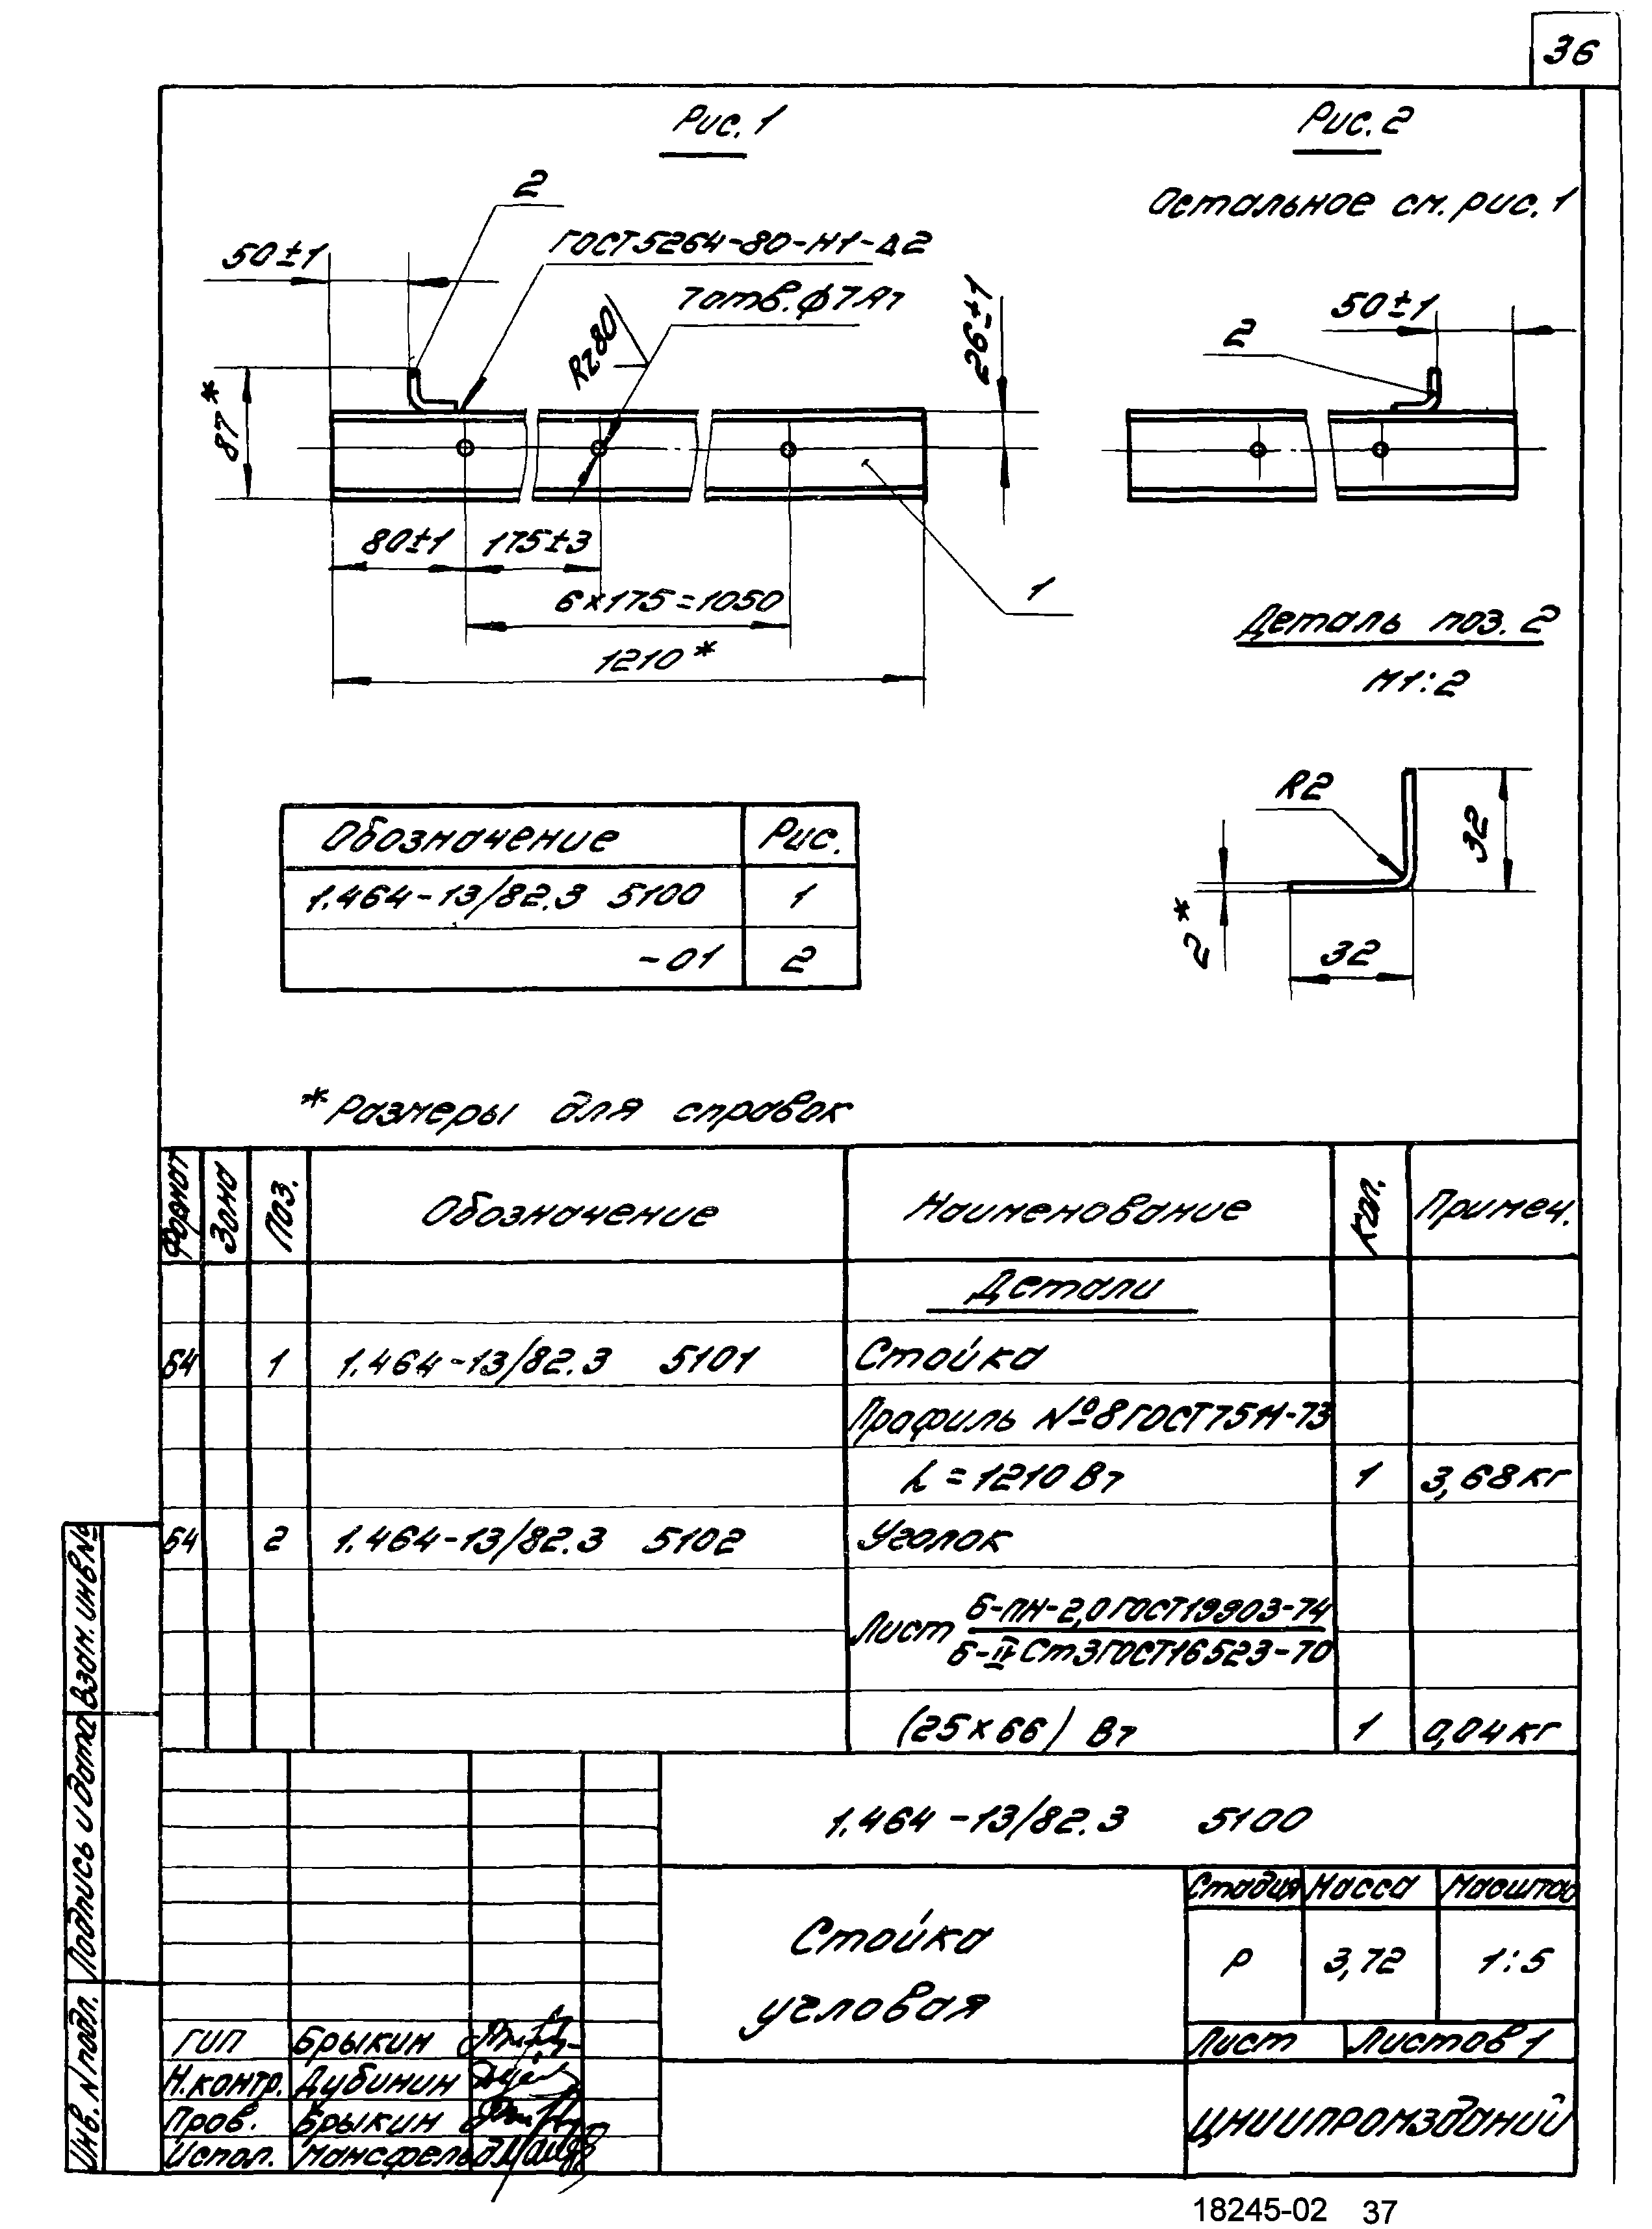 36
Рис. 1
Рис. 2
Остальное см. рис. 1
2
ГОСТ 5264-80-Н1-Δ2
50±1
7 отв. ф 7 А7
Rz80
26±1
87*
50±1
2
80±1
175±3
6×175=1050
1210*
1
Деталь поз. 2
М1:2
R2
32
2*
32
Обозначение Рис.
1.464-13/82.3 5100 1
-01 2
*Размеры для справок
Формат Зона Поз. Обозначение Наименование Кол. Примеч.
Детали
Б4 1 1.464-13/82.3 5101 Стойка
Профиль №8 ГОСТ 7511-73
L=1210 В7 1 3,68 кг
Б4 2 1.464-13/82.3 5102 Уголок
Лист Б-ПН-2,0 ГОСТ 19903-74
Б-IV Ст3 ГОСТ 16523-70
(25×66) В7 1 0,04 кг
1.464-13/82.3 5100
Стойка
угловая
Стадия Масса Масштаб
Р 3,72 1:5
Лист Листов 1
ЦНИИПРОМЗДАНИЙ
ГИП Брыкин
Н.контр. Дубинин
Пров. Брыкин
Испол. Мансфельд
Инв. N подл. Подпись и дата Взам. инв №
18245-02 37